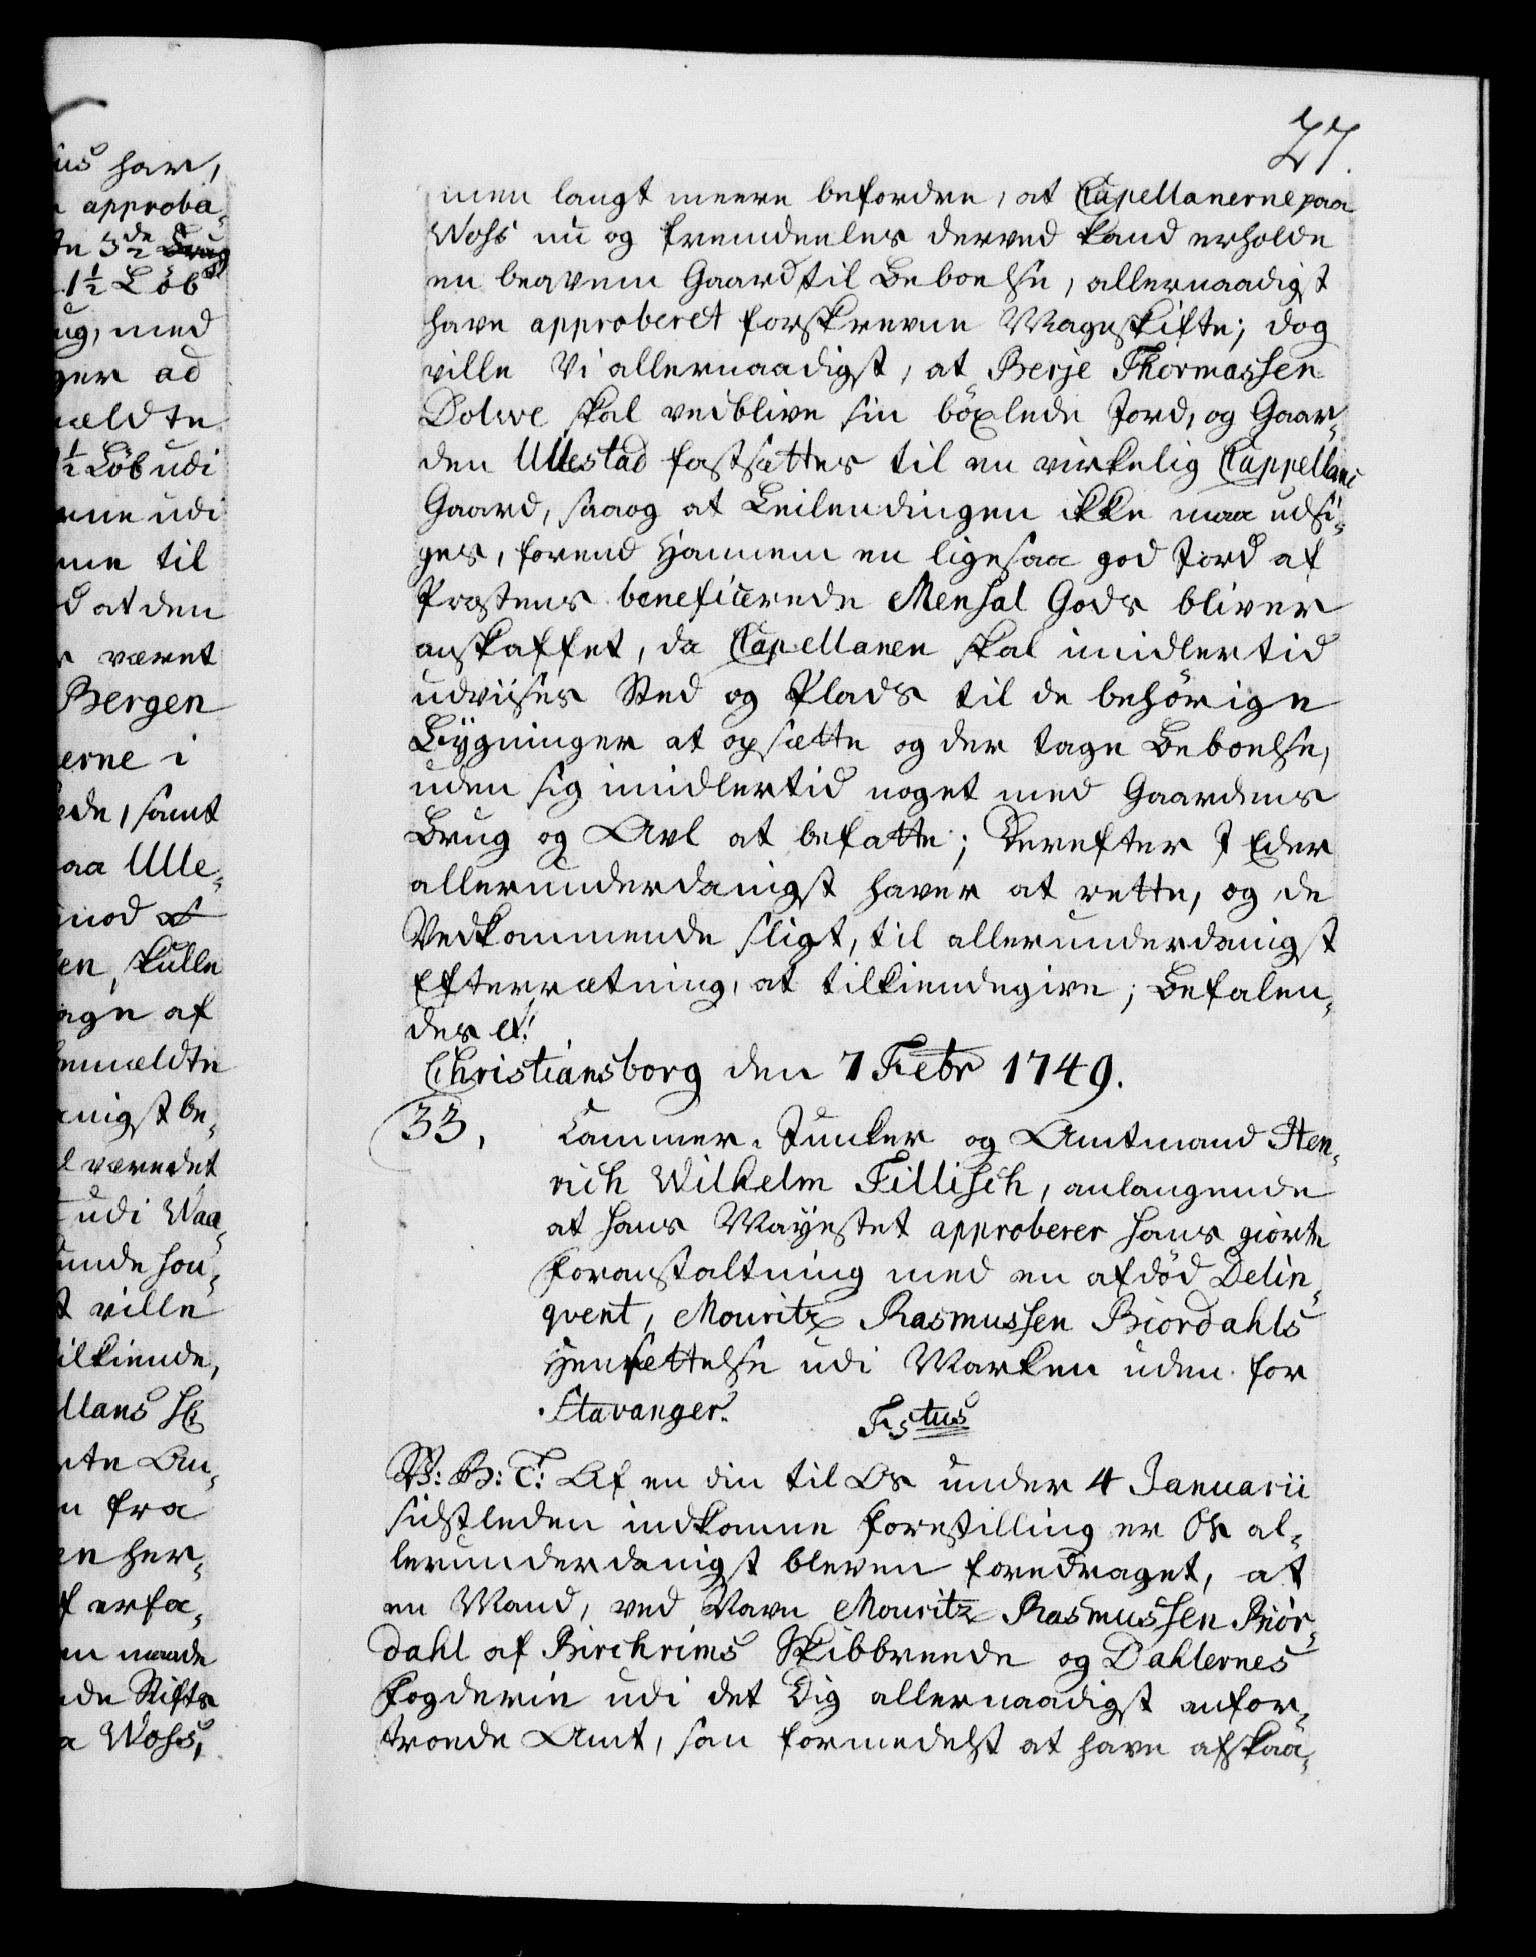 us har,
approba-
1½ Løb
ug, med
ger ad
meldte
½ Løb udi
rne udi
me til
d at den
været
Bergen
erne i
ede, samt
aa Ulle-
mod
en, skulle
age af
bemældte
nigst be-
l væredet
udi Waa-
t ville
ilkiende,
llans
n fra
en her-
f erfa-
en maade
de Stifts
a Wohs,
27.
men langt meere befordre, at Capellanerne paa
Wohs nu og fremdeeles derved kand erholde
en beqvem Gaard til Beboelse, allernaadigst
have approberet forskrevne Mageskifte; dog
ville Vi allernaadigst, at Berje Thormassen
Dolwe skal vedblive sin böxlede Jord, og Gaar-
den Ullestad fastsættes til en virkelig Cappellani
Gaard, saa og at Leilendingen ikke maa udsi-
ges, førend Hannem en ligesaa god Jord af
Prostens beneficerede Mensal Gods bliver
anskaffet, da Capellanen skal imidlertid
udviises Sted og Plads til de behörige
Bygninger at opsætte og der tage Beboelse,
uden sig imidlertid noget med Gaardens
Brug og Avl at befatte; Derefter I Eder
allerunderdanigst haver at rette, og de
Vedkommende sligt, til allerunderdanigst
Efterrætning, at tilkiendegive; Befalen-
des et:
Christiansborg den 7 Febr 1749.
33, Cammer-Junker og Amtmand Hen-
rich Wilhelm Tillisch, anlangende
at Hans Mayestet approberer hans giorte
Foranstaltning med en afdöd Delin-
qvent, Mouritz Rasmussen Biordahls
Hensettelse udi Marken uden for
Stavanger.
F. 5tus
W: B: T: Af en din til Os under 4 Januarii
sidstleden indkomne Forestilling er Os al-
lerunderdanigst bleven foredraget, at
en Mand, ved Navn Mouritz Rasmussen Biör-
dahl af Birchrims Skibbrede og Dahlernes
Fogderie udi det Dig allernaadigst anfor-
troede Amt, som formedelst at have afskaa-